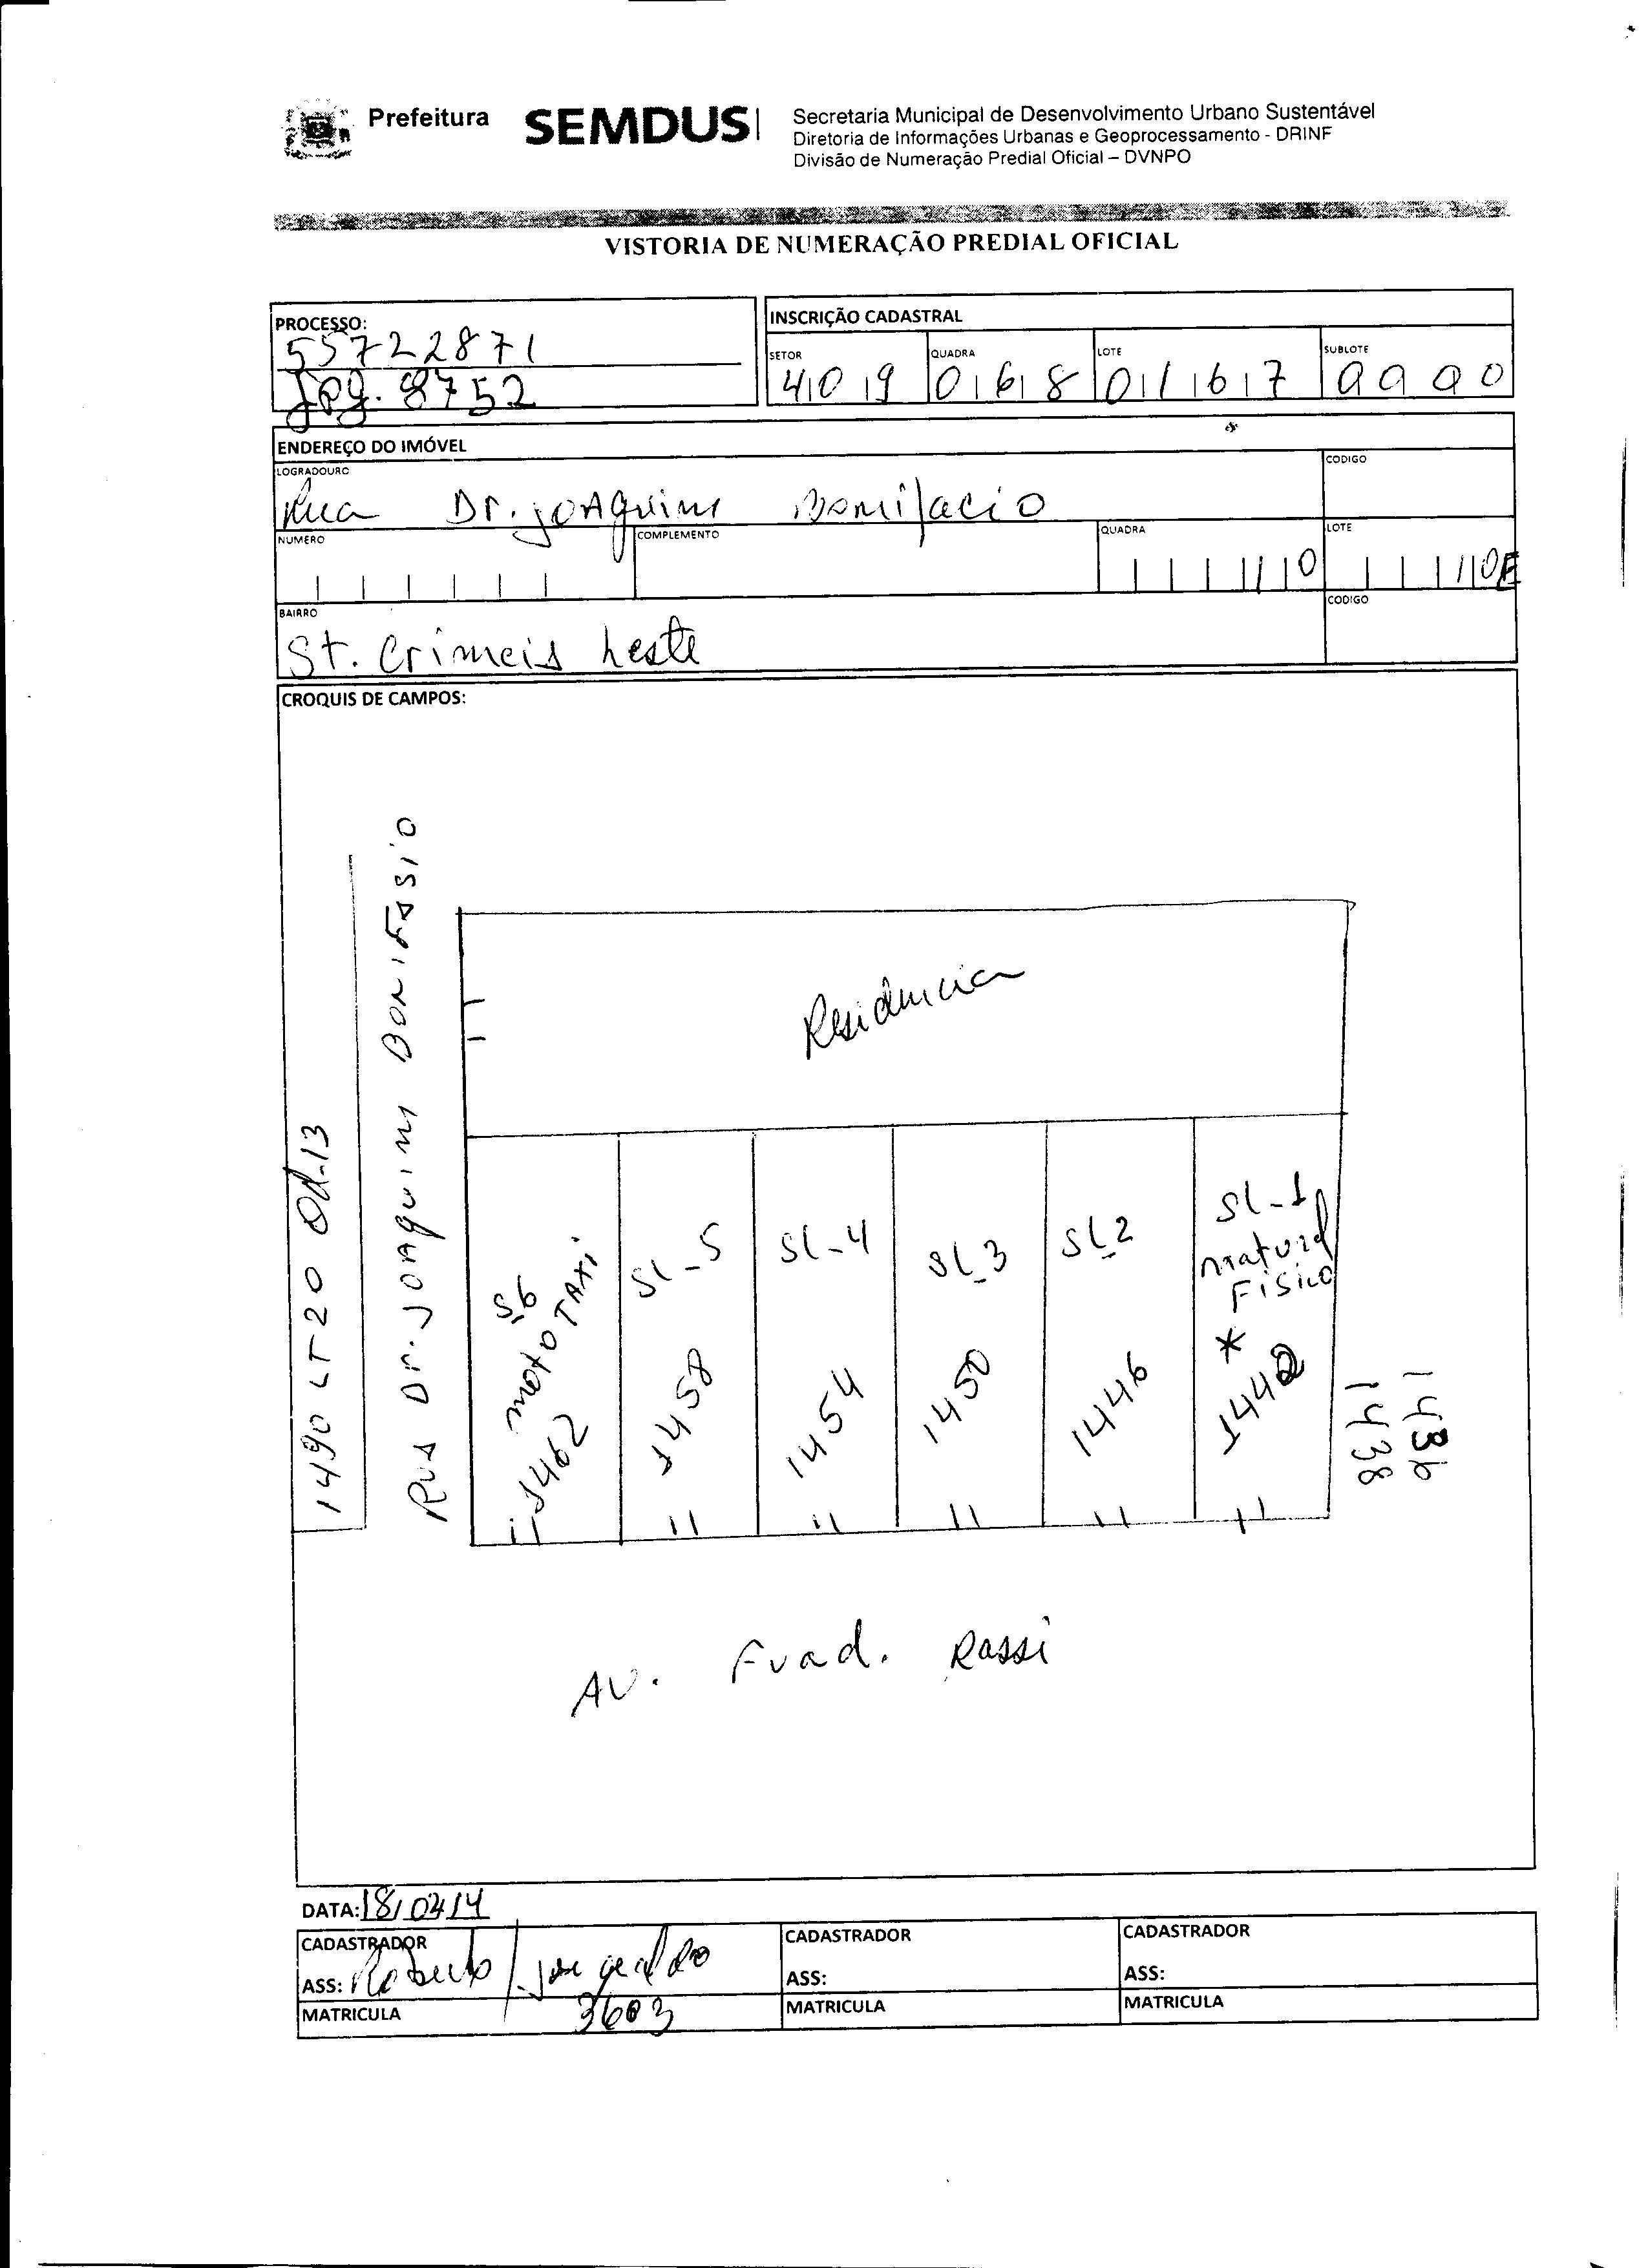 Prefeitura SEMDUS
Secretaria Municipal de Desenvolvimento Urbano Sustentável
Diretoria de Informações Urbanas e Geoprocessamento - DRINF
Divisão de Numeração Predial Oficial – DVNPO
VISTORIA DE NUMERAÇÃO PREDIAL OFICIAL
PROCESSO:
55722871
8752
INSCRIÇÃO CADASTRAL
SETOR QUADRA LOTE SUBLOTE
409 068 0167 0000
ENDEREÇO DO IMÓVEL
LOGRADOURO CODIGO
Rua Dr. Joaquim Bonifacio
NUMERO COMPLEMENTO QUADRA LOTE
110 110E
BAIRRO CODIGO
St. Crimeia Leste
CROQUIS DE CAMPOS:
1490 LT 20 Qd-13
Rua Dr. Joaquim Bonifasio
Residencia
S-6
moto TAXI
1462
SL-5
1458
SL-4
1454
SL-3
1450
SL-2
1446
SL-1
natural
Fisico
*
1442
1438
1436
AV. Fuad. Rassi
DATA: 18/02/14
CADASTRADOR CADASTRADOR CADASTRADOR
ASS: Roberto / ASS: ASS:
MATRICULA 3603 MATRICULA MATRICULA